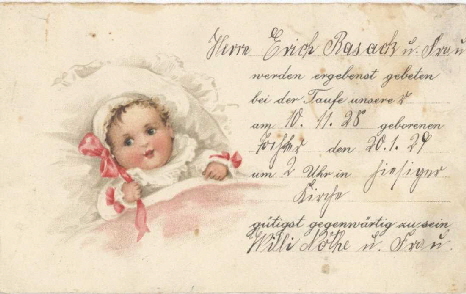 Herrn Erich Rasack u. Frau
werden ergebenst gebeten
bei der Taufe unserer
am 10. 11. 28 geborenen
Tochter den 20. 1. 29
um 2 Uhr in hiesiger
Kirche
gütigst gegenwärtig zu sein
Willi Nöthe u. Frau.